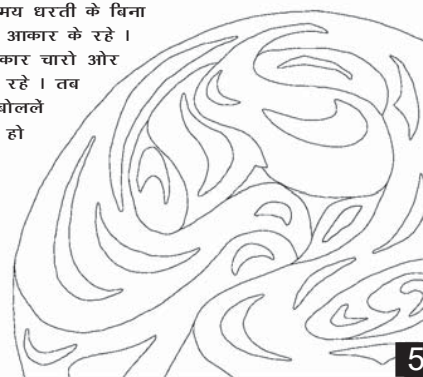 मय धरती के बिना
आकार के रहे ।
कार चारो ओर
रहे । तब
बोललें
हो
5